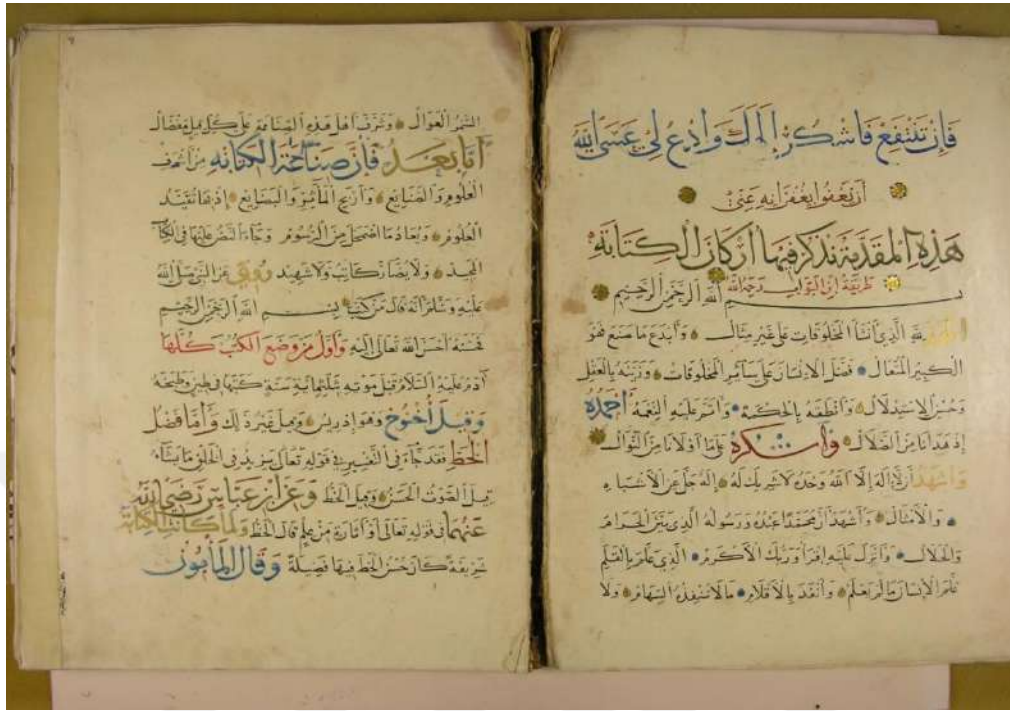 فَإِنْ تَنْتَفِعْ فَاشْكُرْ إِلَهَكَ وَادْعُ لِي عَسَى اللَّهُ
أَنْ يَعْفُوا بِغُفْرَانِهِ عَنِّي
هَذِهِ الْمُقَدِّمَةُ نَذْكُرُ فِيهَا أَرْكَانَ الْكِتَابَةِ
طَرِيقَةُ ابْنِ الْبَوَّابِ رَحِمَهُ اللَّهُ
بِسْمِ اللَّهِ الرَّحْمَنِ الرَّحِيمِ
الحمد لله الَّذِي أَنْشَأَ الْمَخْلُوقَاتِ عَلَى غَيْرِ مِثَالٍ وَأَبْدَعَ مَا صَنَعَ فَهُوَ
الْكَبِيرُ الْمُتَعَالُ فَضَّلَ الْإِنْسَانَ عَلَى سَائِرِ الْمَخْلُوقَاتِ وَزَيَّنَهُ بِالْعَقْلِ
وَحُسْنِ الِاسْتِدْلَالِ وَأَنْطَقَهُ بِالْحِكْمَةِ وَأَتَمَّ عَلَيْهِ النِّعْمَةَ أَحْمَدُهُ
إِذْ هَدَانَا مِنَ الضَّلَالِ وَأَشْكُرُهُ عَلَى مَا أَوْلَانَا مِنَ النَّوَالِ
وَأَشْهَدُ أَنْ لَا إِلَهَ إِلَّا اللَّهُ وَحْدَهُ لَا شَرِيكَ لَهُ إِلَهٌ جَلَّ عَنِ الْأَشْبَاهِ
وَالْأَمْثَالِ وَأَشْهَدُ أَنَّ مُحَمَّدًا عَبْدُهُ وَرَسُولُهُ الَّذِي بَيَّنَ الْحَرَامَ
وَالْحَلَالَ وَأُنْزِلَ عَلَيْهِ اقْرَأْ وَرَبُّكَ الْأَكْرَمُ الَّذِي عَلَّمَ بِالْقَلَمِ
عَلَّمَ الْإِنْسَانَ مَا لَمْ يَعْلَمْ وَأَنْفَذَ بِالْأَقْلَامِ مَا لَا تُنْفِذُهُ السِّهَامُ وَلَا
السُّمْرُ الْعَوَالُ وَشَرَّفَ أَهْلَ هَذِهِ الصِّنَاعَةِ عَلَى كُلِّ
أَمَّا بَعْدُ فَإِنَّ صِنَاعَةَ الْكِتَابَةِ مِنْ أَشْرَفِ
الْعُلُومِ وَالصَّنَايِعِ وَأَرْبَحِ وَالْبَضَايِعِ إِذْ بِهَا تُقَيَّدُ
الْعُلُومُ مَا اضْمَحَلَّ مِنَ الرُّسُومِ وَجَاءَ النَّصُّ عَلَيْهَا فِي
وَلَا يُضَارَّ كَاتِبٌ وَلَا شَهِيدٌ وَرُوِيَ عَنِ النَّبِيِّ صَلَّى اللَّهُ
عَلَيْهِ وَسَلَّمَ أَنَّهُ قَالَ مَنْ كَتَبَ بِسْمِ اللَّهِ الرَّحْمَنِ الرَّحِيمِ
أَحْسَنَ اللَّهُ تَعَالَى إِلَيْهِ وَأَوَّلُ مَنْ وَضَعَ الْكُتُبَ كُلَّهَا
آدَمُ عَلَيْهِ السَّلَامُ قَبْلَ مَوْتِهِ بِثَلْثِمِائَةِ سَنَةٍ كَتَبَهَا فِي طِينٍ وَطَبَخَهُ
وَقِيلَ أُخْنُوخُ وَهُوَ إِدْرِيسُ وَقِيلَ غَيْرُ ذَلِكَ وَأَمَّا فَضْلُ
الْخَطِّ فَقَدْ جَاءَ فِي التَّفْسِيرِ فِي قَوْلِهِ تَعَالَى يَزِيدُ فِي الْخَلْقِ مَا يَشَاءُ
قِيلَ الصَّوْتُ الْحَسَنُ وَقِيلَ الْخَطُّ وَعَنِ ابْنِ عَبَّاسٍ رَضِيَ اللَّهُ
عَنْهُمَا فِي قَوْلِهِ تَعَالَى أَوْ أَثَارَةٍ مِنْ عِلْمٍ قَالَ الْخَطُّ وَلَمَّا كَانَتِ الْكِتَابَةُ
شَرِيفَةً كَانَ حُسْنُ الْخَطِّ فِيهَا فَضِيلَةً وَقَالَ الْمَأْمُونُ